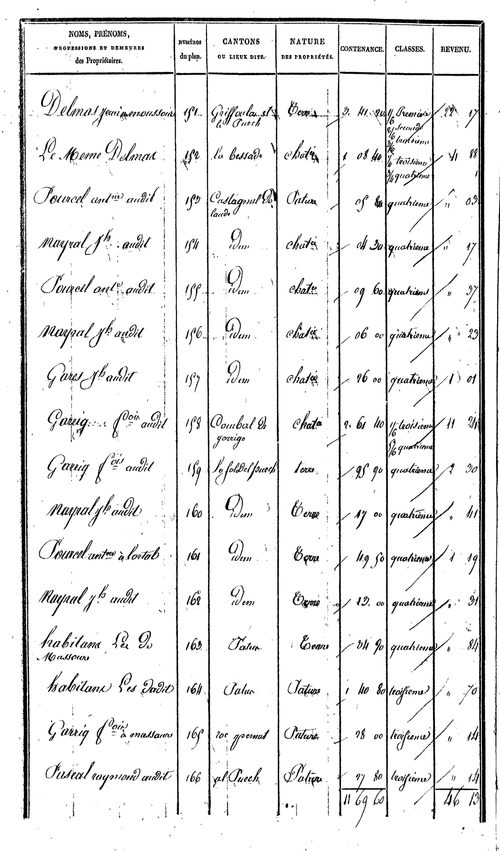 NOMS, PRÉNOMS, PROFESSIONS ET DEMEURES des Propriétaires. | NUMÉROS du plan. | CANTONS OU LIEUX DITS. | NATURE DES PROPRIÉTÉS. | CONTENANCE. | CLASSES. | REVENU.
Delmas à moussour 151 Griffoulas et le Puech Terre 2. 41 20 1/6 Première 2/6 seconde 3/6 troisieme 22 17
Le Meme Delmas 152 La bessade chat.re 1 08 40 troisieme quatrieme 11 88
Pourcel ant.ne audit 153 Castagnal De Pature 05 80 quatrieme " 03
Mayral J.h audit 154 idem chat.re 04 30 quatrieme " 17
Pourcel ant.ne audit 155 idem chat.re 09 60 quatrieme " 37
Mayral J.h audit 156 idem chat.re 06 00 quatrieme " 23
J.h audit 157 idem chat.re 26 00 quatrieme 1 01
Garrig f.çois audit 158 Combal De garrigo chat.re 2. 61 40 1/6 troisieme 5/6 quatrieme 11 24
Garrig f.çois audit 159 Terre 95 90 quatrieme 2 30
Mayral J.h audit 160 idem Terre 17 00 quatrieme " 41
Pourcel ant.ne à 161 idem Terre 49 50 quatrieme 1 19
Mayral J.h audit 162 idem Terre 13 00 quatrieme " 31
habitans Les De 163 Patur Terre 34 90 quatrieme " 84
habitans Les dudit 164 Patur Pature 1 40 80 troisieme " 70
Garrig f.çois 165 roc Pature 28 00 troisieme " 14
Pascal raymond audit 166 al Puech Pature 27 80 troisieme " 14
11 69 60 46 13